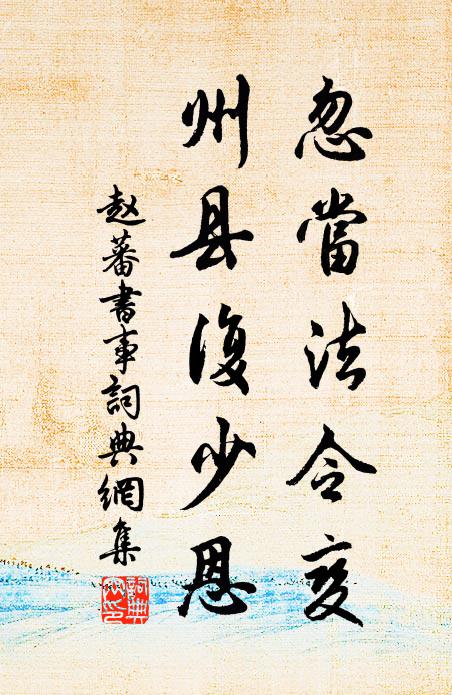 忽當法令变
州县復少恩
赵蕃書事詞典網集